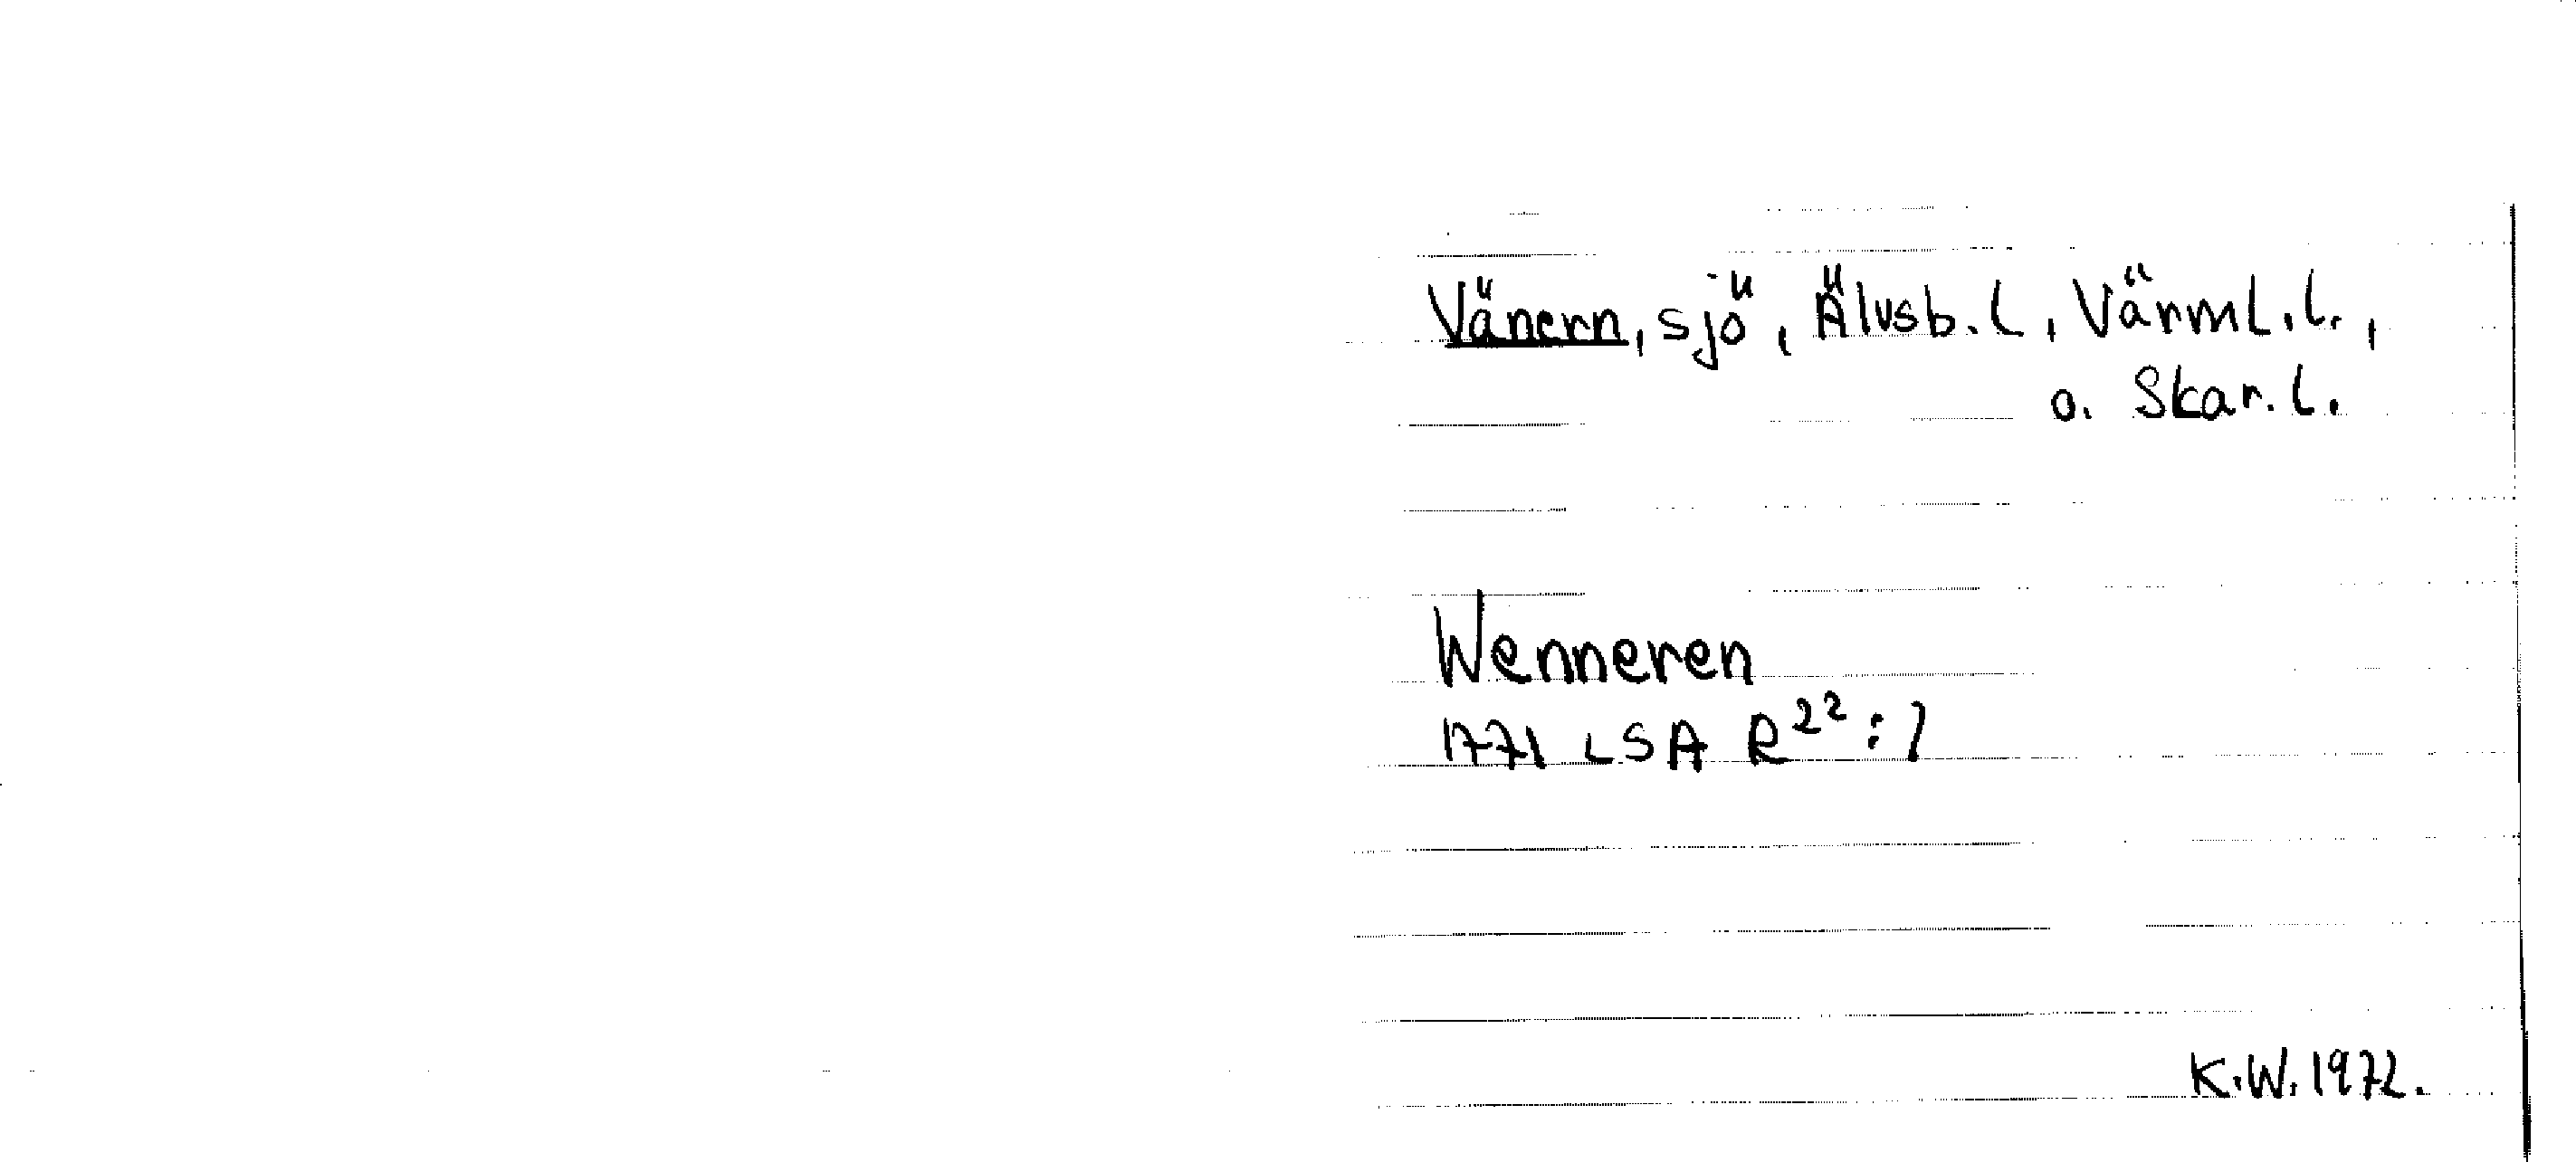 Vänern, sjö, Älvsb. l, Värml. l.,
o. Skar. l.
Wenneren
1771 LSA R²² : 1
K.W. 1972.